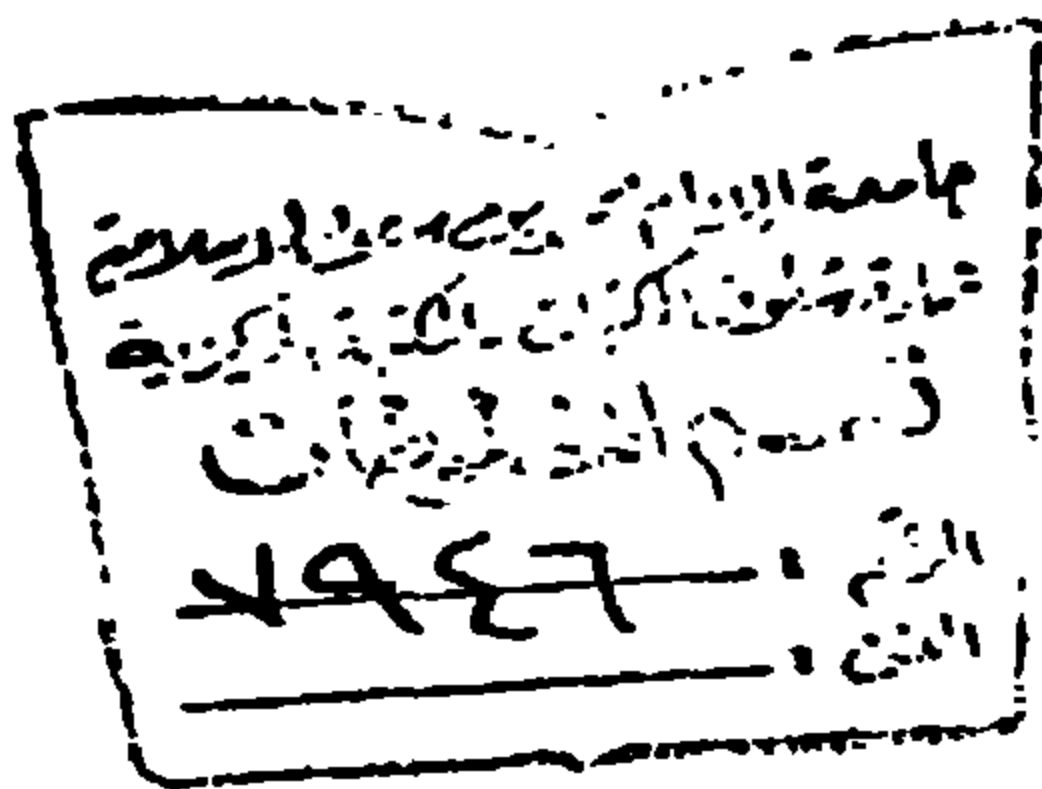 جامعة الإمام محمد بن سعود الإسلامية
عمادة شؤون المكتبات - المكتبة المركزية
قسم المخطوطات
الرقم : ٧٩٤٦
الفن :